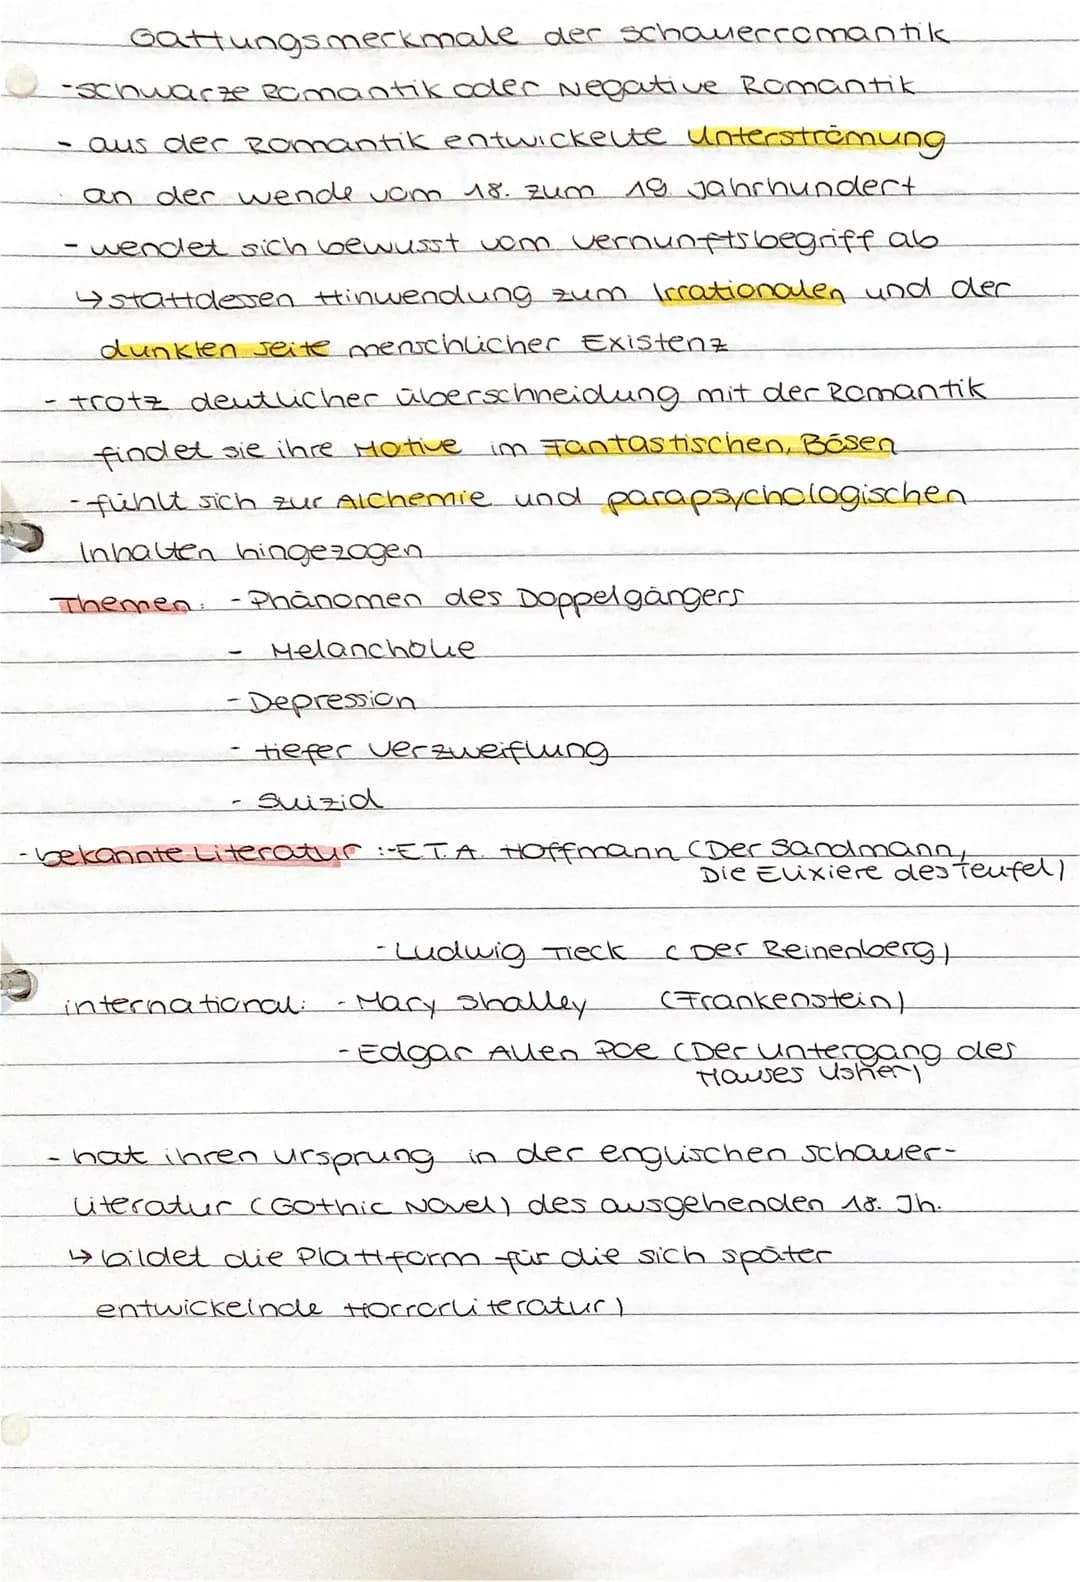 Gattungsmerkmale der Schauerromantik
- Schwarze Romantik oder Negative Romantik
- aus der Romantik entwickelte Unterströmung
an der Wende vom 18. zum 19. Jahrhundert
- wendet sich bewusst vom Vernunftsbegriff ab
↳ stattdessen Hinwendung zum Irrationalen und der
dunklen Seite menschlicher Existenz
- trotz deutlicher Überschneidung mit der Romantik
findet sie ihre Motive im Fantastischen, Bösen
- fühlt sich zur Alchemie und parapsychologischen
Inhalten hingezogen
Themen: - Phänomen des Doppelgängers
- Melancholie
- Depression
- tiefer Verzweiflung
- Suizid
- bekannte Literatur :- E.T.A. Hoffmann (Der Sandmann,
Die Elixiere des Teufel)
- Ludwig Tieck (Der Reinenberg)
international: - Mary Shalley (Frankenstein)
- Edgar Allen Poe (Der Untergang des
Hauses Usher)
- hat ihren Ursprung in der englischen Schauer-
literatur (Gothic Novel) des ausgehenden 18. Jh.
↳ bildet die Plattform für die sich später
entwickelnde Horrorliteratur)